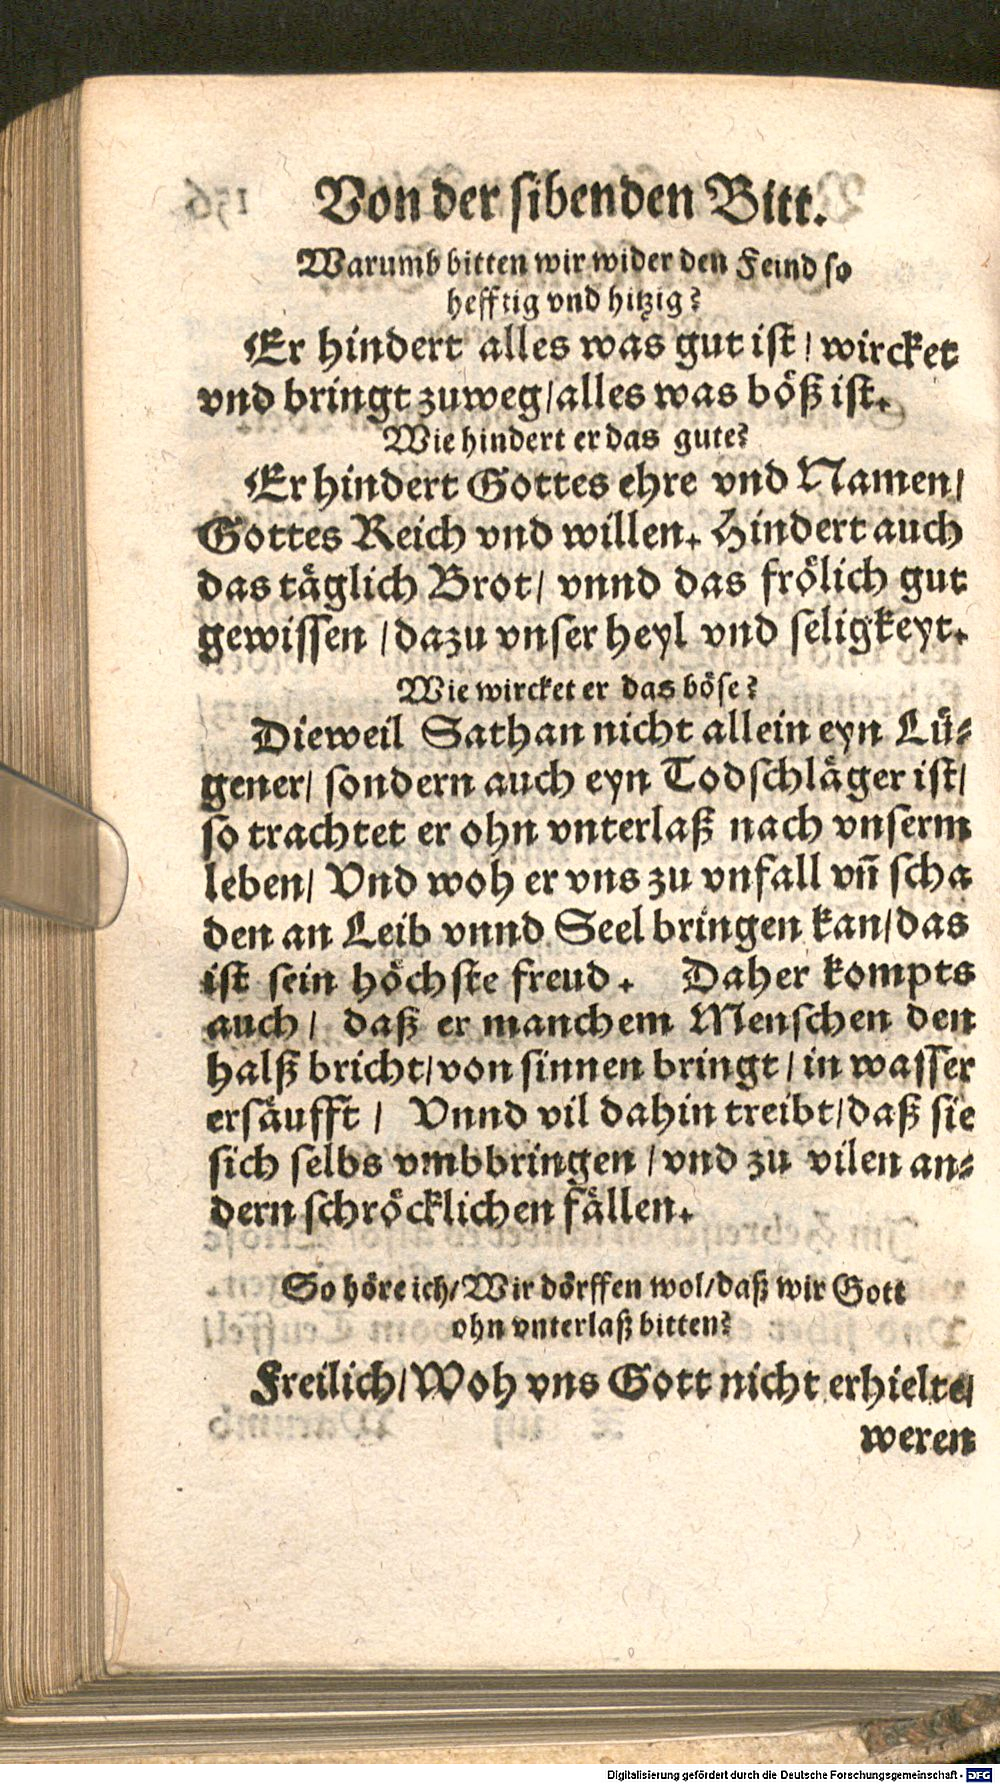 Von der sibenden Bitt.
Warumb bitten wir wider den Feind so
hefftig vnd hitzig?
Er hindert alles was gut ist / wircket
vnd bringt zuweg / alles was böß ist.
Wie hindert er das gute?
Er hindert Gottes ehre vnd Namen /
Gottes Reich vnd willen. Hindert auch
das täglich Brot / vnnd das frölich gut
gewissen / dazu vnser heyl vnd seligkeyt.
Wie wircket er das böse?
Dieweil Sathan nicht allein eyn Lü-
gener / sondern auch eyn Todschläger ist /
so trachtet er ohn vnterlaß nach vnserm
leben / Vnd woh er vns zu vnfall vñ scha
den an Leib vnnd Seel bringen kan / das
ist sein höchste freud. Daher kompts
auch / daß er manchem Menschen den
halß bricht / von sinnen bringt / in wasser
ersäufft / Vnnd vil dahin treibt / daß sie
sich selbs vmbbringen / vnd zu vilen an-
dern schröcklichen fällen.
So höre ich / Wir dörffen wol / daß wir Gott
ohn vnterlaß bitten?
Freilich / Woh vns Gott nicht erhielte /
weren
Digitalisierung gefördert durch die Deutsche Forschungsgemeinschaft - DFG